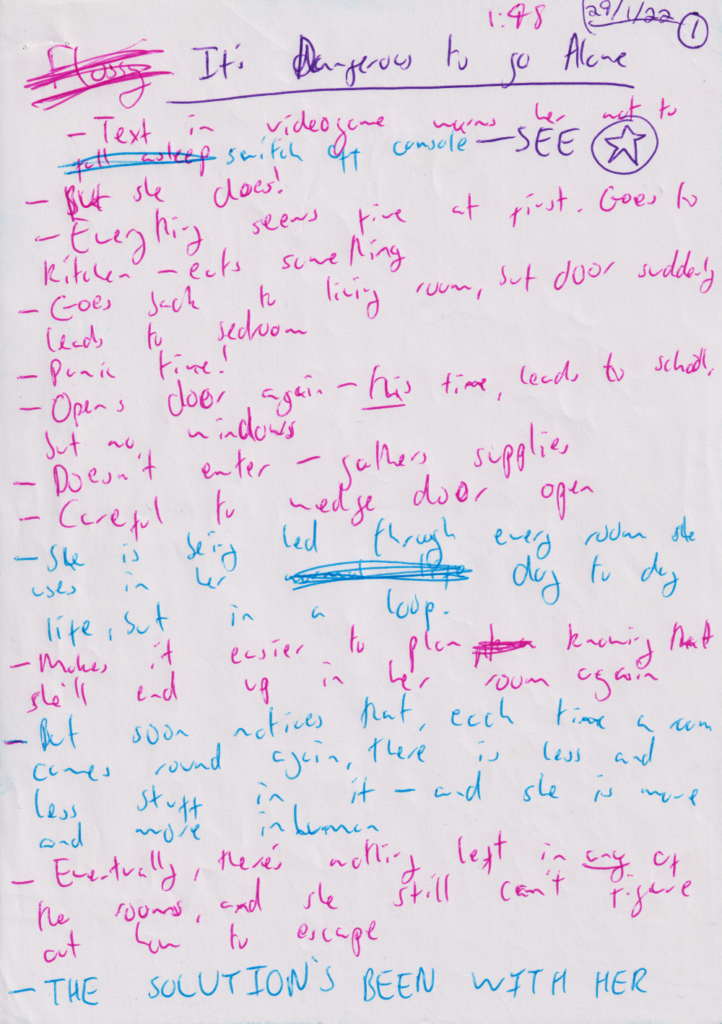 1:48 29/1/22 1
Flossy It's Dangerous to go Alone
- Text in videogame warns her not to
fall asleep switch off console - SEE ☆
- But she does!
- Everything seems fine at first. Goes to
kitchen - eats something
- Goes back to living room, but door suddenly
leads to bedroom
- Panic time!
- Opens door again - this time, leads to school,
but no windows
- Doesn't enter - gathers supplies
- Careful to wedge door open
- She is being led through every room she
uses in her day to day
life, but in a loop.
- Makes it easier to plan knowing that
she'll end up in her room again
- But soon notices that, each time a room
comes round again, there is less and
less stuff in it - and she is more
and more inhuman
- Eventually, there's nothing left in any of
the rooms, and she still can't figure
out how to escape
- THE SOLUTION'S BEEN WITH HER